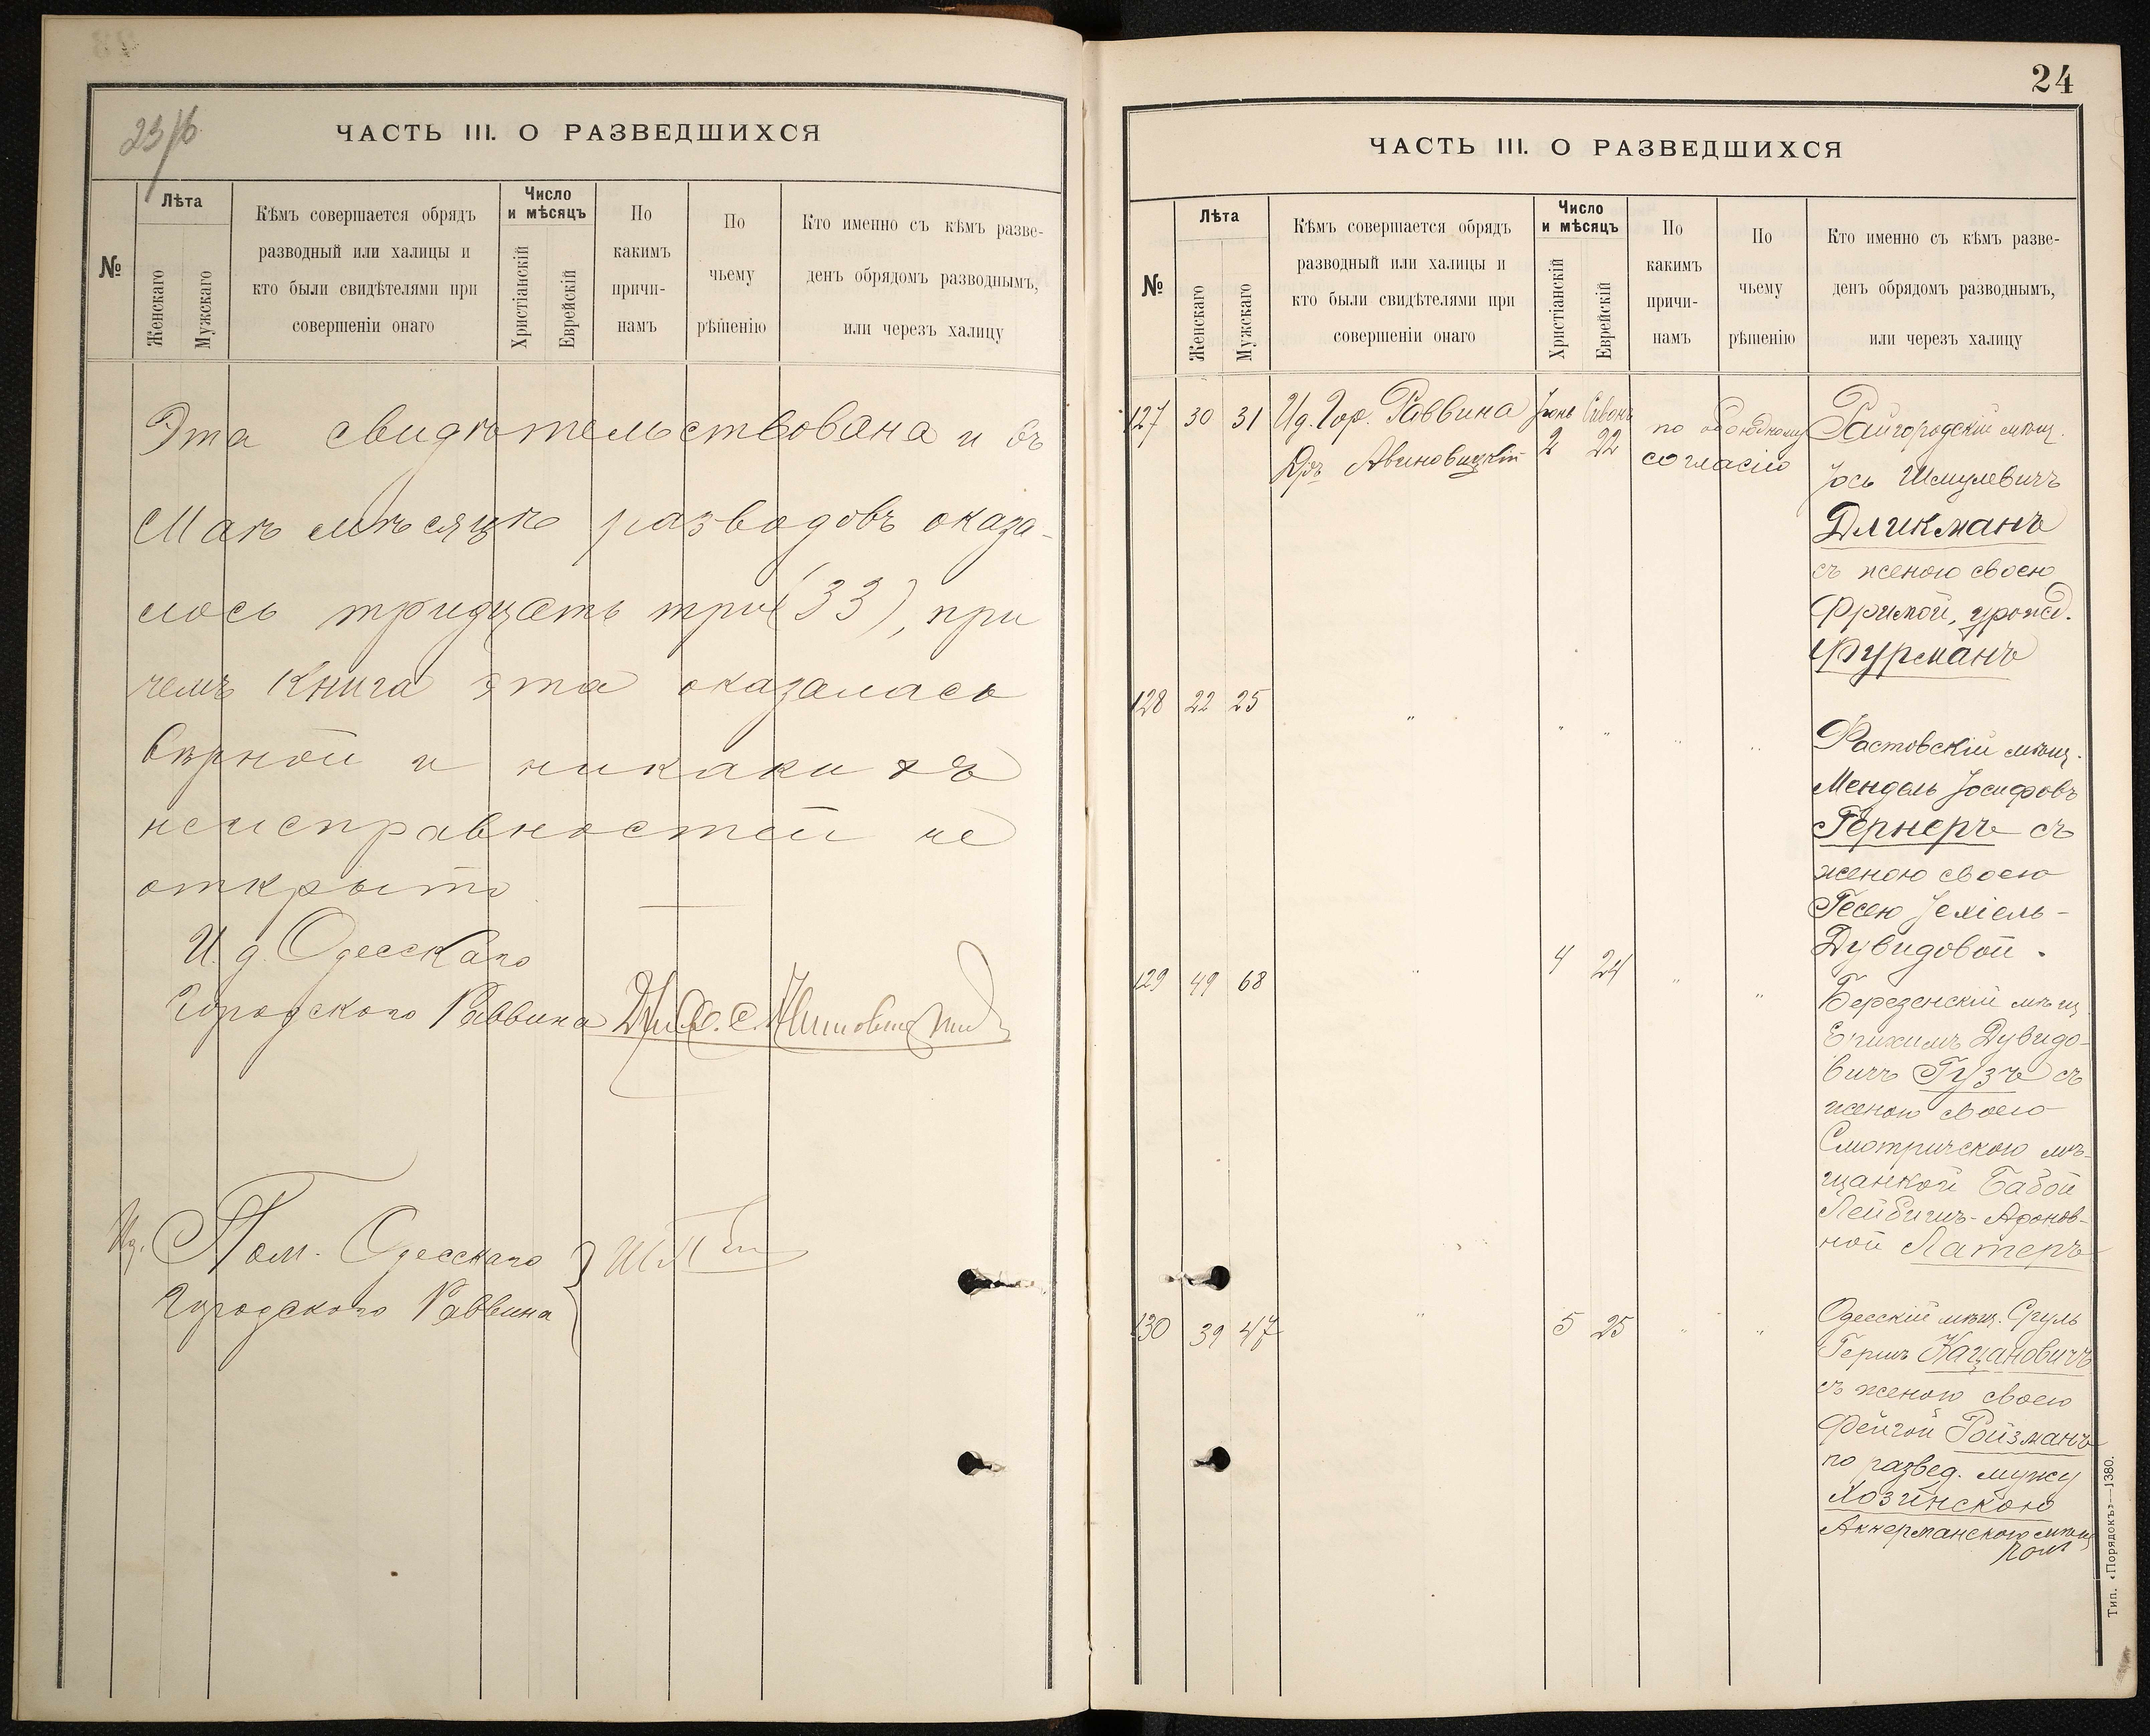 23/б
ЧАСТЬ III. О РАЗВЕДШИХСЯ
№
Лѣта
Женскаго
Мужскаго
Кѣмъ совершается обрядъ
разводный или халицы и
кто были свидѣтелями при
совершеніи онаго
Число
и мѣсяцъ
Христіанскій
Еврейскій
По
какимъ
причи-
намъ
По
чьему
рѣшенію
Кто именно съ кѣмъ разве-
денъ обрядомъ разводнымъ,
или черезъ халицу
Эта свидѣтельствована и въ
Маѣ мѣсяцѣ разводовъ оказа-
лось тридцать три (33), при
чемъ книга эта оказалась
вѣрной и никакихъ
неисправностей не
открыто
И. д. Одесскаго
Городского Раввина
Ид. Пом. Одесскаго
Городского Раввина
24
ЧАСТЬ III. О РАЗВЕДШИХСЯ
№
Лѣта
Женскаго
Мужскаго
Кѣмъ совершается обрядъ
разводный или халицы и
кто были свидѣтелями при
совершеніи онаго
Число
и мѣсяцъ
Христіанскій
Еврейскій
По
какимъ
причи-
намъ
По
чьему
рѣшенію
Кто именно съ кѣмъ разве-
денъ обрядомъ разводнымъ,
или черезъ халицу
127 30 31 Ид. Гор. Раввина Іюнь Сивонъ по обоюдному
Дръ Авиновицкій 2 22 согласію
Райгородскій мѣщ.
Іось Шмулевичъ
Дликманъ
съ женою своею
Фримой, урожд.
Фурманъ
128 22 25 " " " " "
Фастовскій мѣщ.
Мендель Іосифовъ
Гернеръ съ
женою своею
Гесею Іехіель-
Дувидовой.
129 49 68 " 4 24 " "
Березенскій мѣщ
Дувидо-
вичъ Гузъ съ
женою своею
Смотричскою мѣ-
щанкой Бабой
Лейбишъ-Ароновъ-
ной Латеръ
130 39 47 " 5 25 " "
Одесскій мѣщ. Сруль
Гершъ Кацановичъ
съ женою своею
Фейгой Ройзманъ
по развед. мужу
Хозинскою
Аккерманскою мѣщ
кой
Тип. «Порядокъ»—1380.